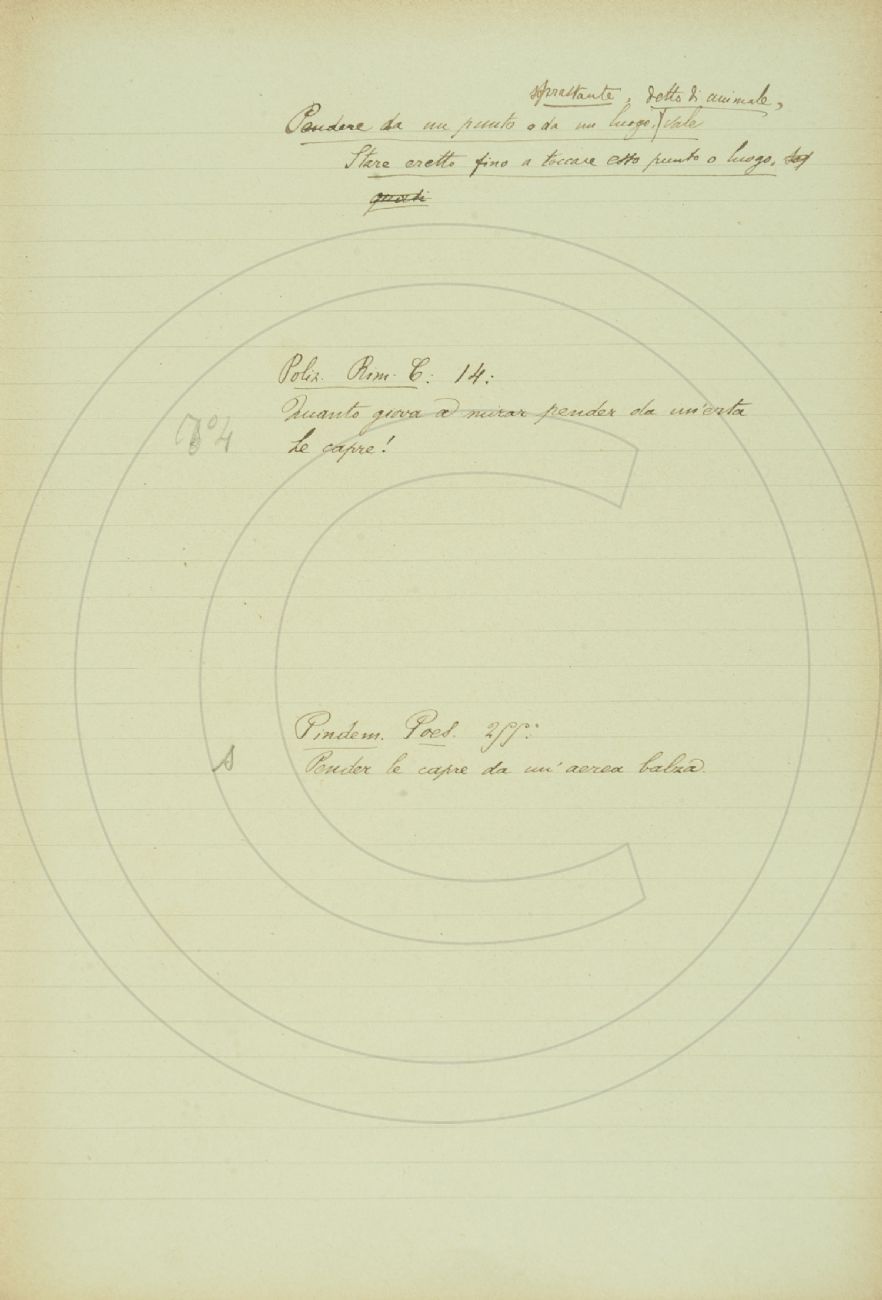 soprastante, detto di animale,
Pendere da un punto o da un luogo, vale
Stare eretto fino a toccare esso punto o luogo.
quasi
Poliz. Rim. C. 14:
Quanto giova a mirar pender da un'erta
Le capre!
Pindem. Poes. 255:
S
Pender le capre da un' aerea balza.